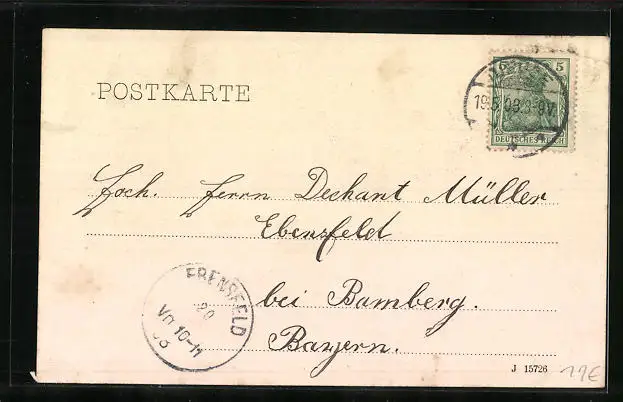 POSTKARTE
5
19.5.03.8-9V.
DEUTSCHES REICH
Hoch. Herrn Dechant Müller
Ebensfeld
bei Bamberg.
Bayern.
EBENSFELD
20
Vm 10-11
03
J 15726
11E